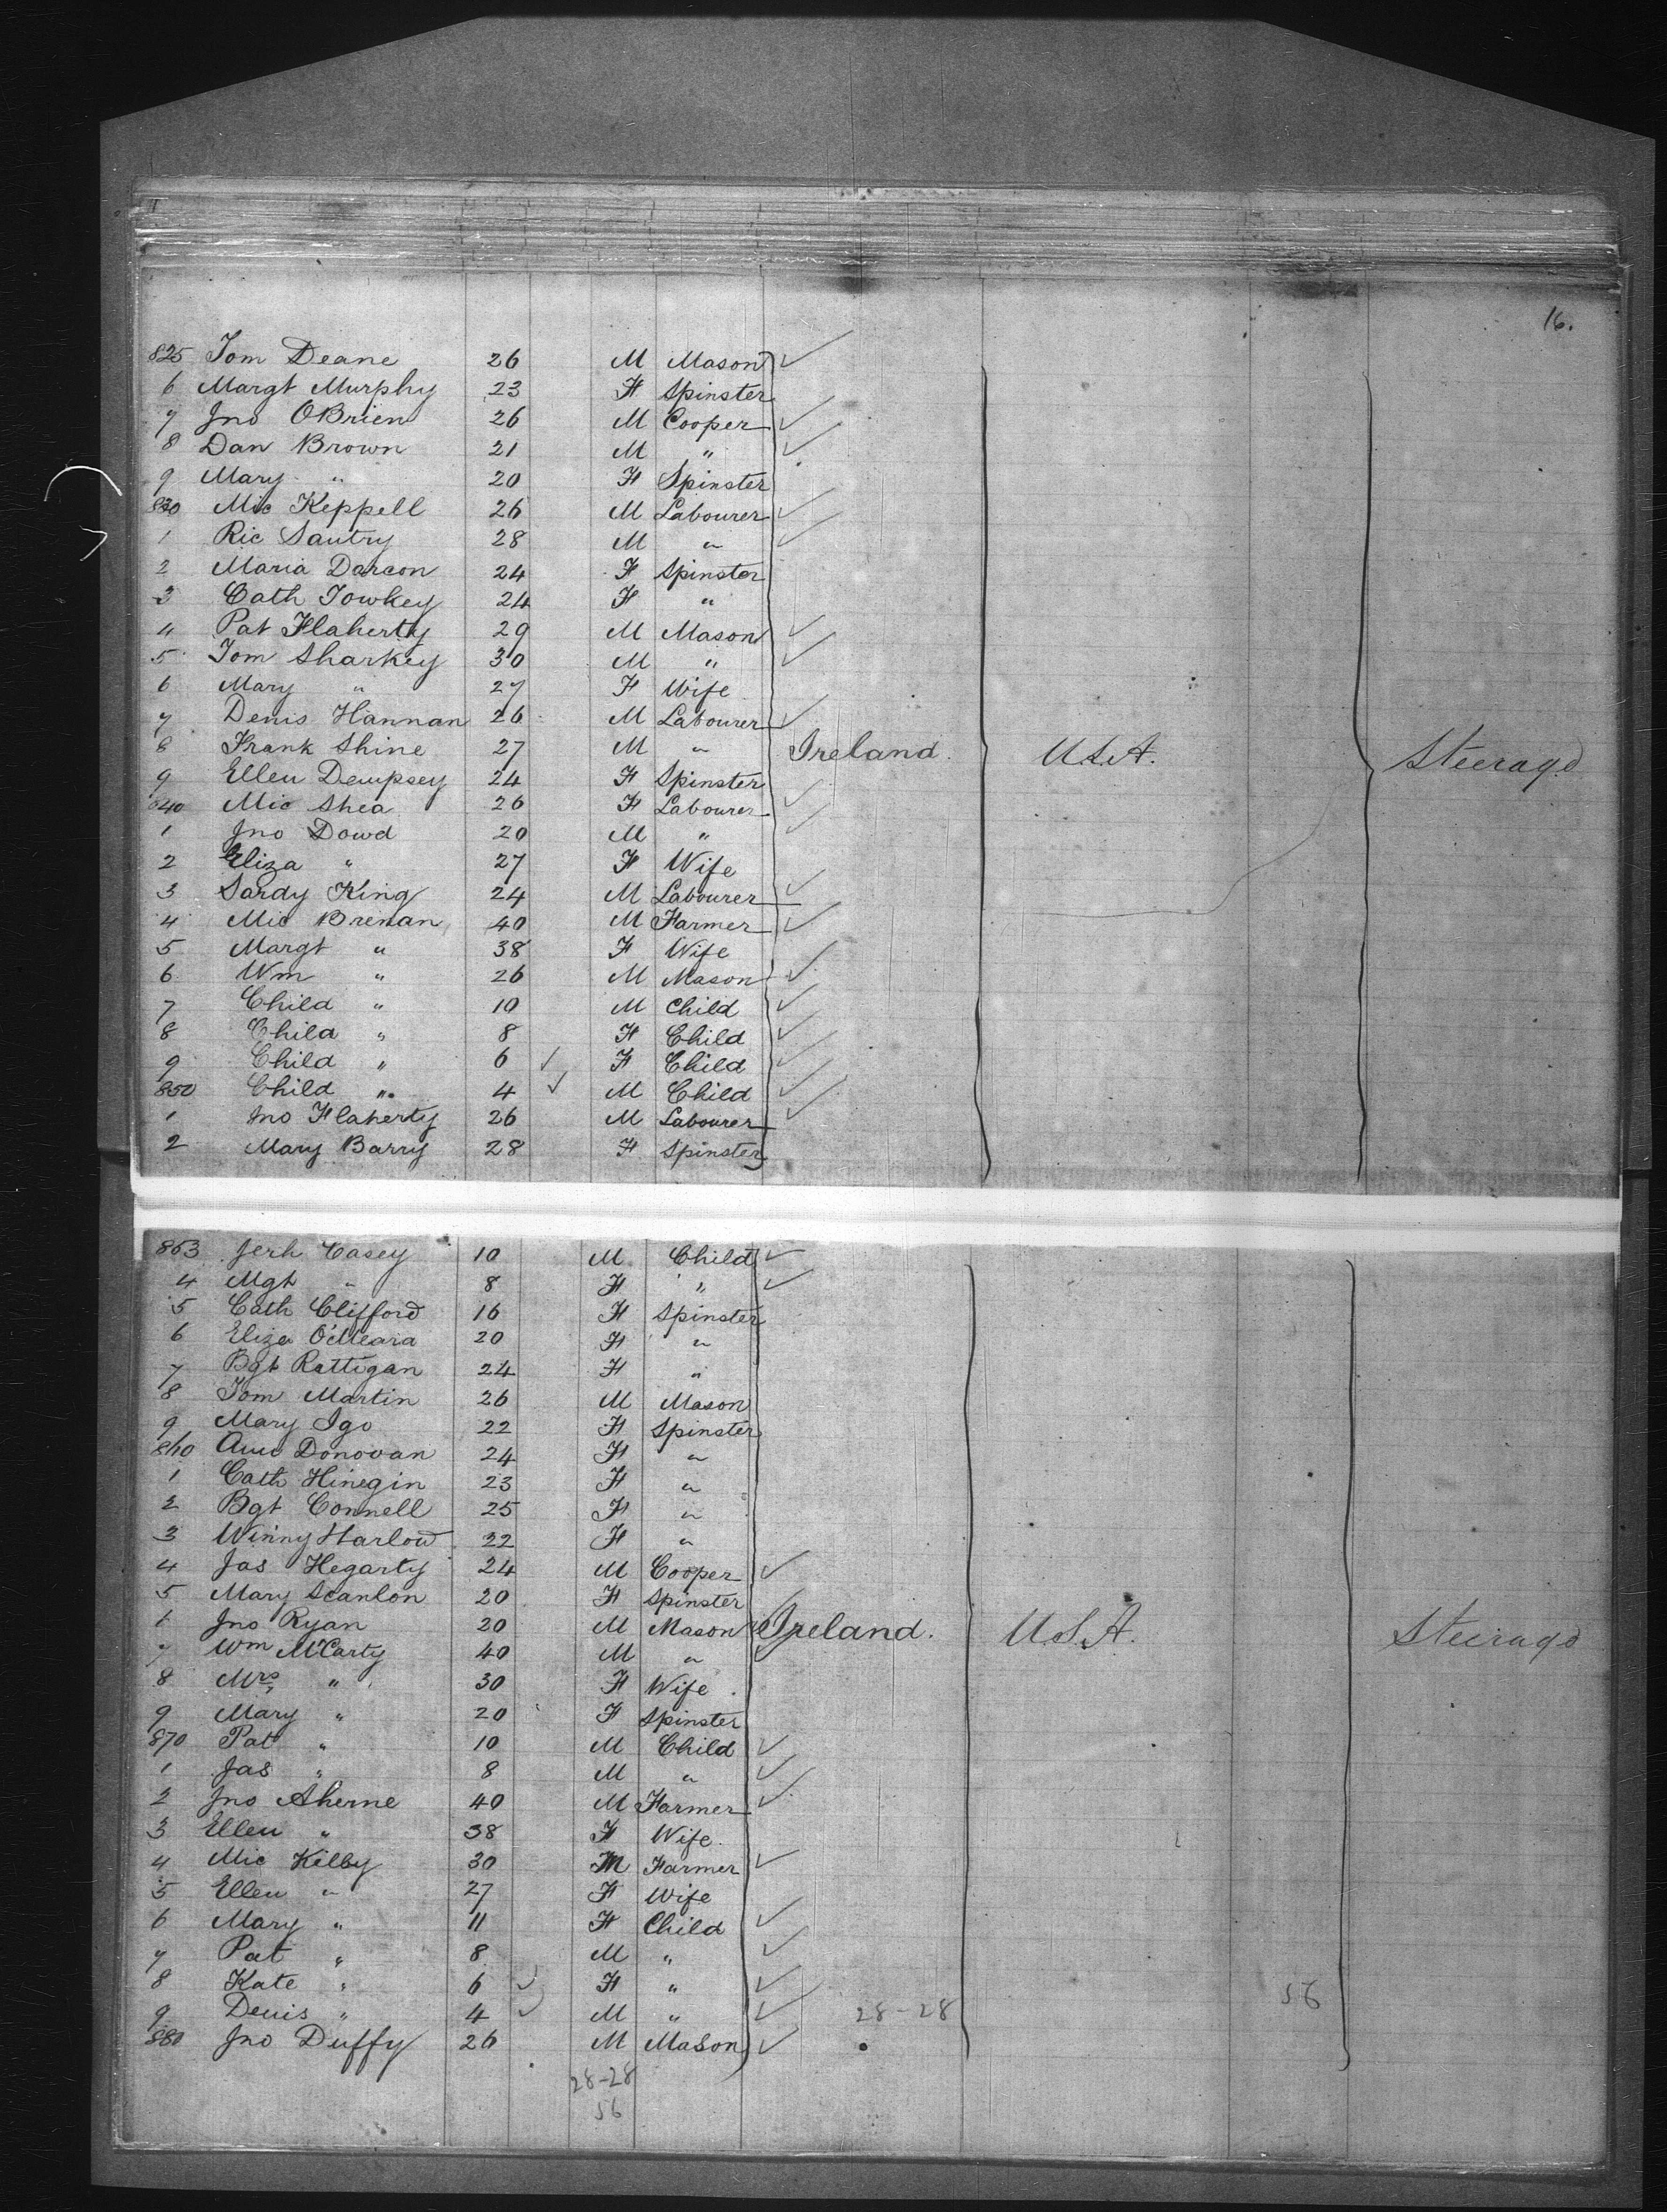 16.
825 Tom Deane 26 M Mason
6 Margt Murphy 23 F Spinster
7 Jno OBrien 26 M Cooper
8 Dan Brown 21 M "
9 Mary " 20 F Spinster
830 Mic Keppell 26 M Labourer
1 Ric Santry 28 M "
2 Maria Darcon 24 F Spinster
3 Cath Towkey 24 F "
4 Pat Flaherty 29 M Mason
5 Tom Sharkey 30 M "
6 Mary " 27 F Wife
7 Denis Hannan 26 M Labourer
8 Frank Shine 27 M " Ireland. U.S.A. Steerage
9 Ellen Dempsey 24 F Spinster
840 Mic Shea 26 F Labourer
1 Jno Dowd 20 M "
2 Eliza " 27 F Wife
3 Sardy King 24 M Labourer
4 Mic Brenan 40 M Farmer
5 Margt " 38 F Wife
6 Wm " 26 M Mason
7 Child " 10 M Child
8 Child " 8 F Child
9 Child " 6 F Child
850 Child " 4 M Child
1 Jno Flaherty 26 M Labourer
2 Mary Barry 28 F Spinster
853 Jerh Casey 10 M Child
4 Mgt " 8 F "
5 Cath Clifford 16 F Spinster
6 Eliza O'Meara 20 F "
7 Bgt Rattigan 24 F "
8 Tom Martin 26 M Mason
9 Mary Igo 22 F Spinster
860 Ann Donovan 24 F "
1 Cath Hinegin 23 F "
2 Bgt Connell 25 F "
3 Winny Harlow 22 F "
4 Jas Hegarty 24 M Cooper
5 Mary Scanlon 20 F Spinster
6 Jno Ryan 20 M Mason Ireland. U.S.A. Steerage
7 Wm McCarty 40 M "
8 Mrs " 30 F Wife
9 Mary " 20 F Spinster
870 Pat " 10 M Child
1 Jas " 8 M "
2 Jno Aherne 40 M Farmer
3 Ellen " 38 F Wife
4 Mic Kilby 30 M Farmer
5 Ellen " 27 F Wife
6 Mary " 11 F Child
7 Pat " 8 M "
8 Kate " 6 F " 56
9 Denis " 4 M " 28-28
880 Jno Duffy 26 M Mason
28-28
56